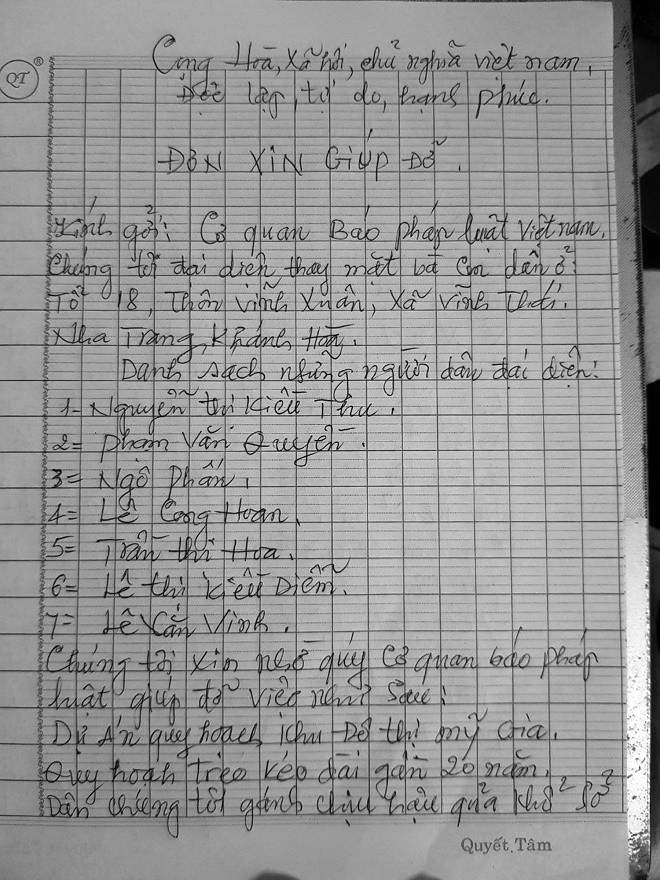 QT ®
Cộng Hoà, Xã hội, chủ nghĩa việt nam,
Độc lập, tự do, hạnh phúc.
ĐƠN XIN GIÚP ĐỠ.
Kính gởi: Cơ quan Báo pháp luật Việt nam.
Chúng tôi đại diện thay mặt bà con dân ở:
Tổ 18, Thôn vĩnh Xuân, Xã Vĩnh Thái.
Nha Trang, Khánh Hoà.
Danh sách những người dân đại diện:
1- Nguyễn thị Kiều Thu.
2= phạm Văn Quyền.
3= Ngô phấn.
4= Lê Công Hoan.
5= Trần thị Hoa.
6= Lê thị Kiều Diễm.
7= Lê Văn Vinh.
Chúng tôi xin nhờ quý cơ quan báo pháp
luật giúp đỡ việc như sau:
Dự Án quy hoạch khu Đô thị mỹ Gia.
Quy hoạch Treo kéo dài gần 20 năm.
Dân chúng tôi gánh chịu hậu quả khổ sở
Quyết Tâm